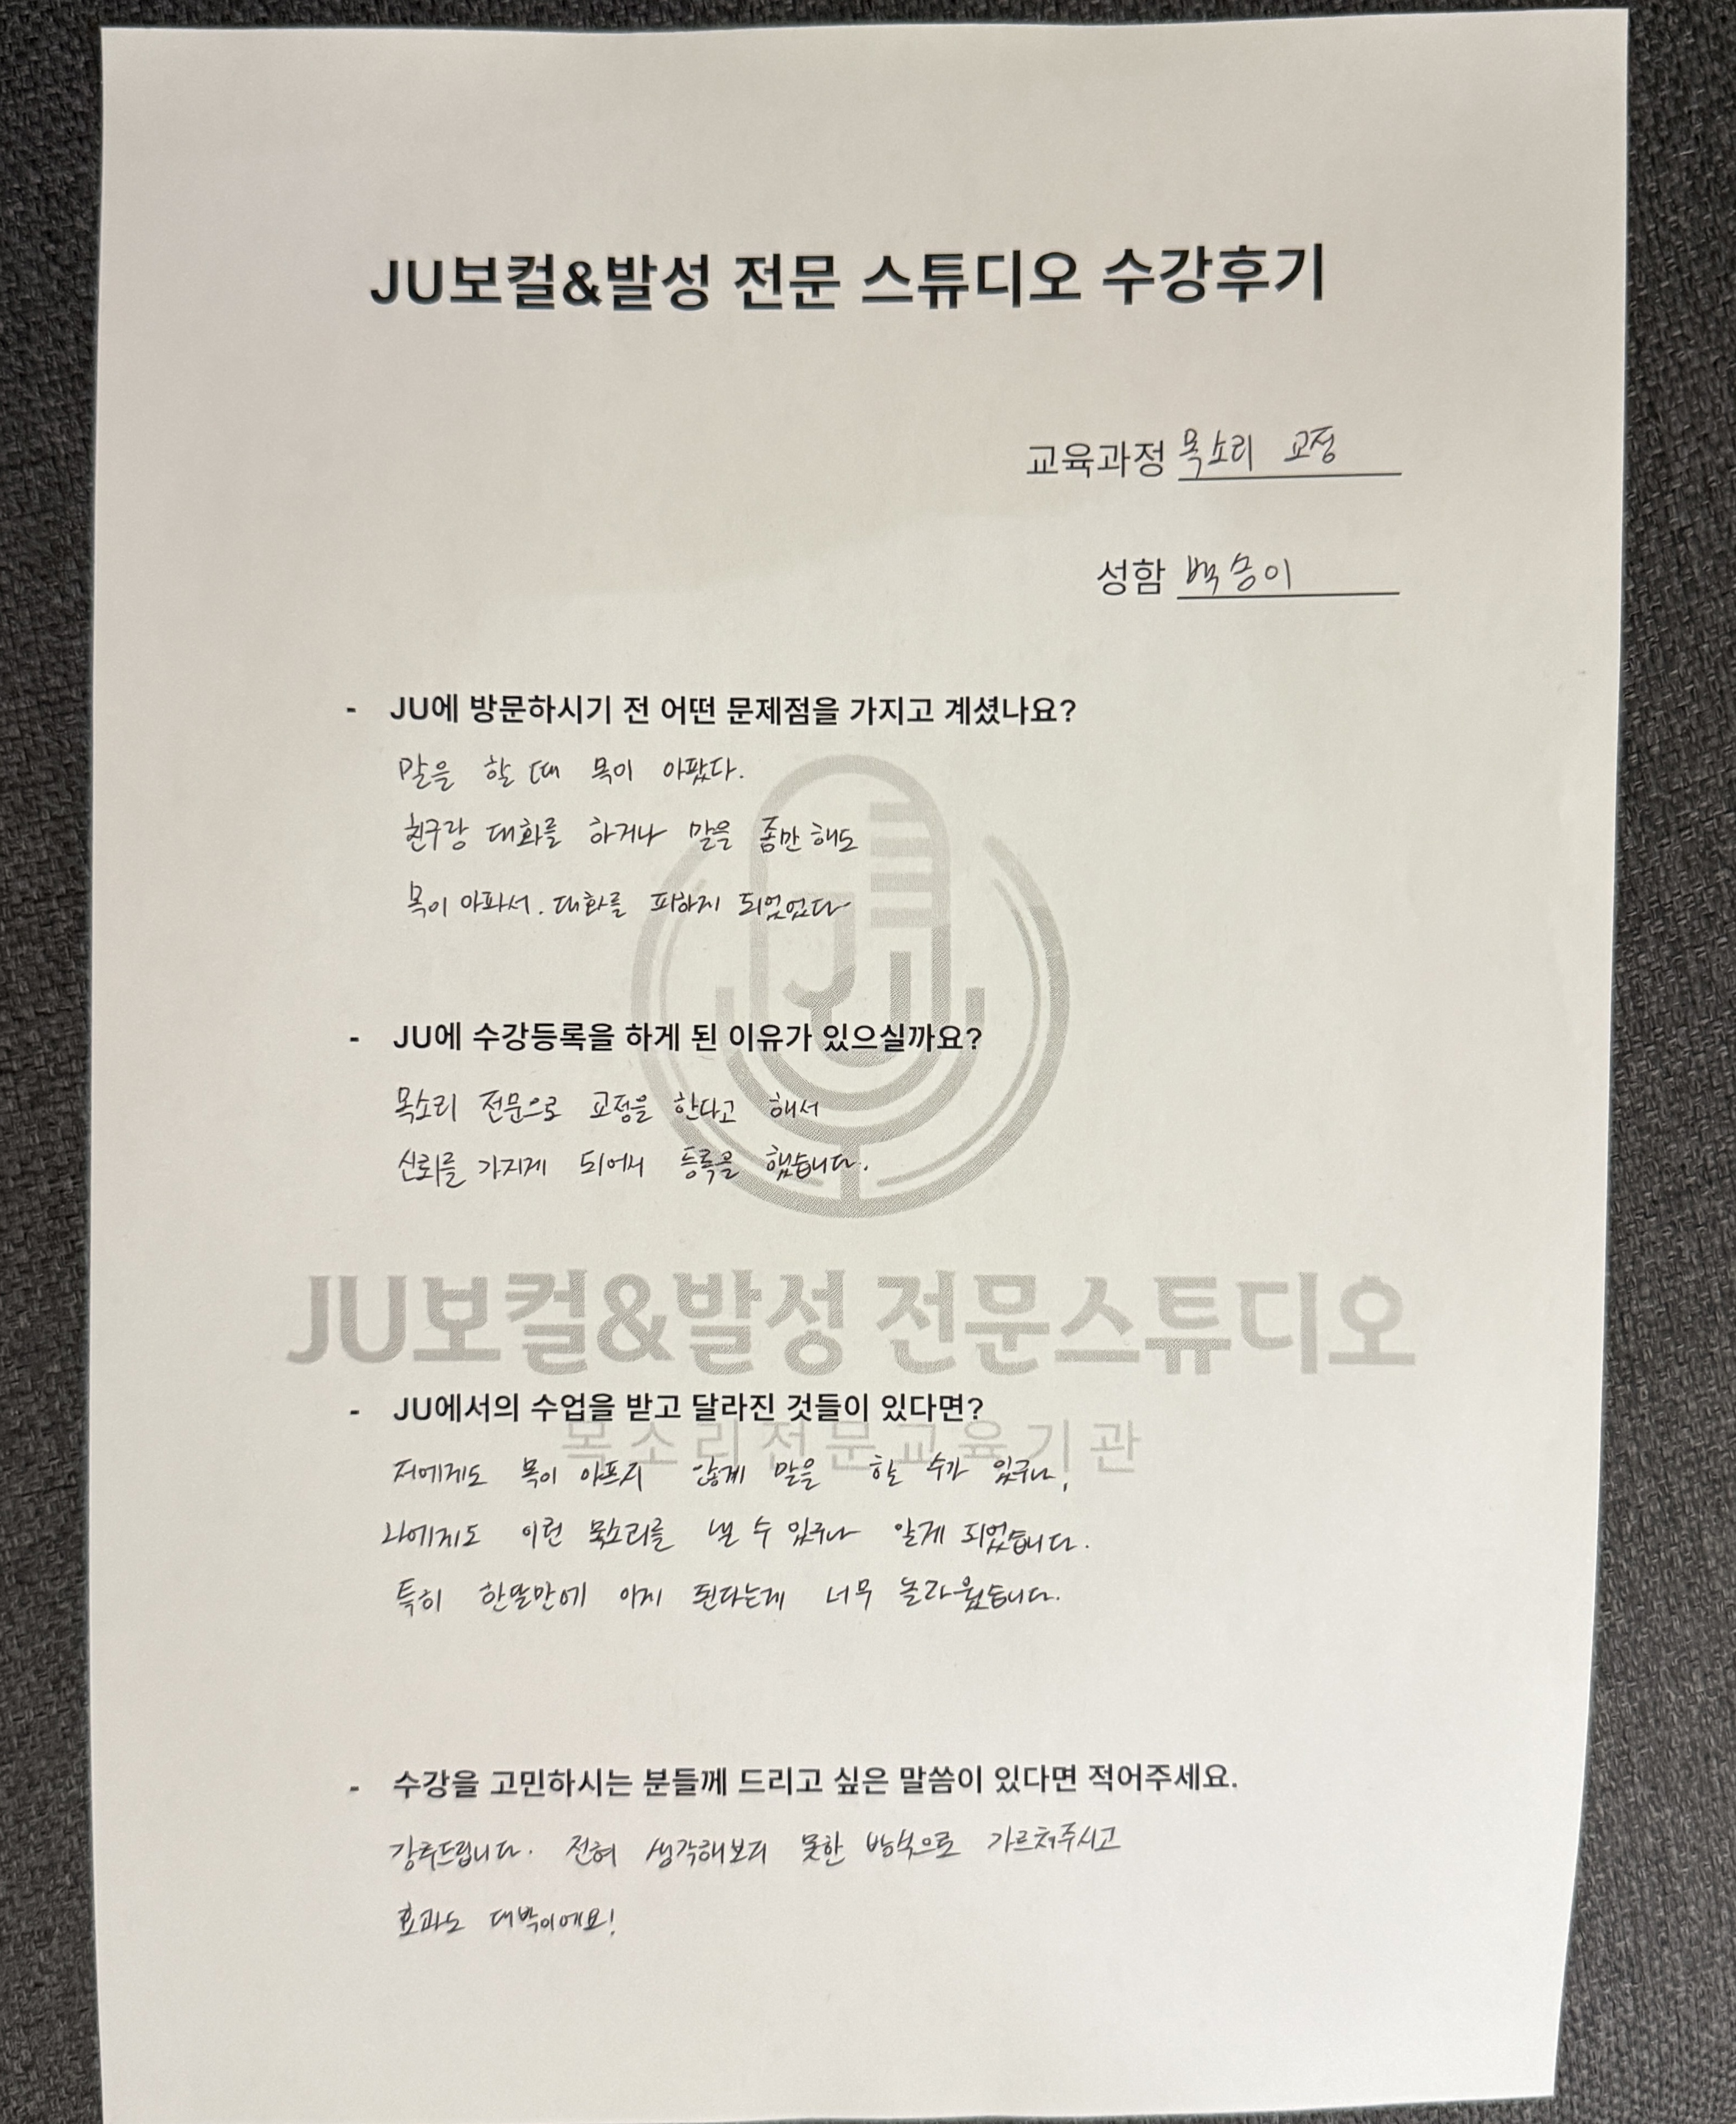 JU보컬&발성 전문 스튜디오 수강후기
교육과정 목소리 교정
성함 백송이
- JU에 방문하시기 전 어떤 문제점을 가지고 계셨나요?
말을 할 때 목이 아팠다.
친구랑 대화를 하거나 말을 좀만 해도
목이 아파서. 대화를 피하게 되었었다
- JU에 수강등록을 하게 된 이유가 있으실까요?
목소리 전문으로 교정을 한다고 해서
신뢰를 가지게 되어서 등록을 했습니다.
JU보컬&발성 전문스튜디오
- JU에서의 수업을 받고 달라진 것들이 있다면?
목소리전문교육기관
저에게도 목이 아프지 않게 말을 할 수가 있구나,
나에게도 이런 목소리를 낼 수 있구나 알게 되었습니다.
특히 한달만에 이게 된다는게 너무 놀라웠습니다.
- 수강을 고민하시는 분들께 드리고 싶은 말씀이 있다면 적어주세요.
강추드립니다. 전혀 생각해보지 못한 방식으로 가르쳐주시고
효과도 대박이에요!